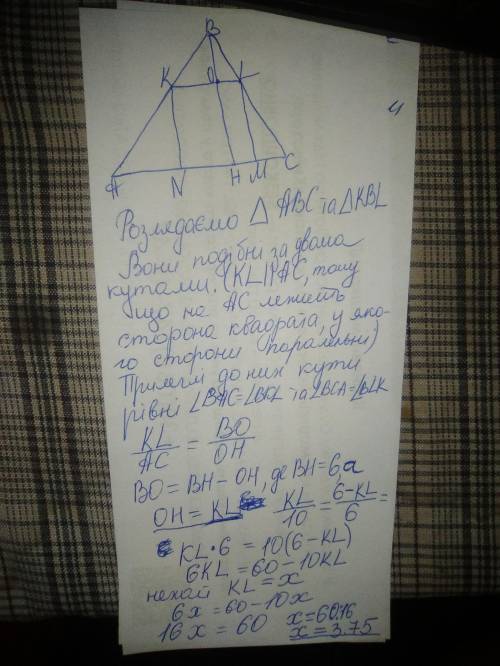 B
K O L
A N H M C
Розглядаємо △ ABC та △KBL
Вони подібні за двома
кутами. (KL||AC, тому
що на AC лежить
сторона квадрата, у яко-
го сторони паралельні)
Прилеглі до них кути
рівні ∠BAC=∠BKL та ∠BCA=∠BLK
KL/AC = BO/OH
BO = BH - OH, де BH = 6
OH = KL KL/10 = 6-KL/6 =
KL·6 = 10(6-KL)
6KL = 60-10KL
нехай KL = x
6x = 60-10x
16x = 60 x=60:16
x = 3,75